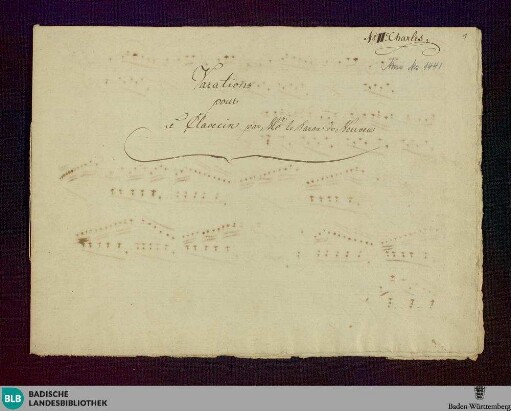 Charles
1
Mus. Ms. 1441
Varations
pour
le Clavecin par Mr. le Baron de
BLB BADISCHE
LANDESBIBLIOTHEK
Baden-Württemberg